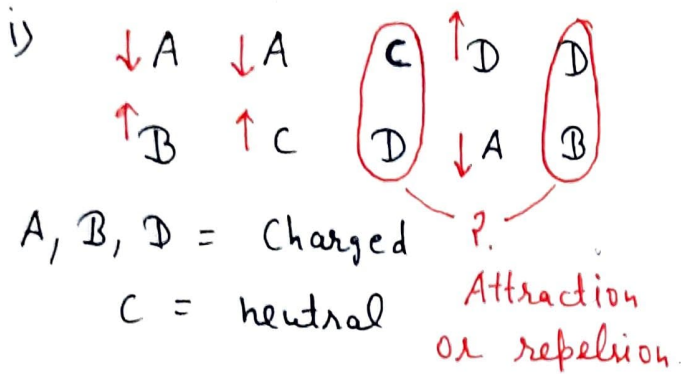 i)
↓A ↓A C ↑D D
↑B ↑C D ↓A B
A, B, D = Charged ?.
C = neutral Attraction
or repelsion.